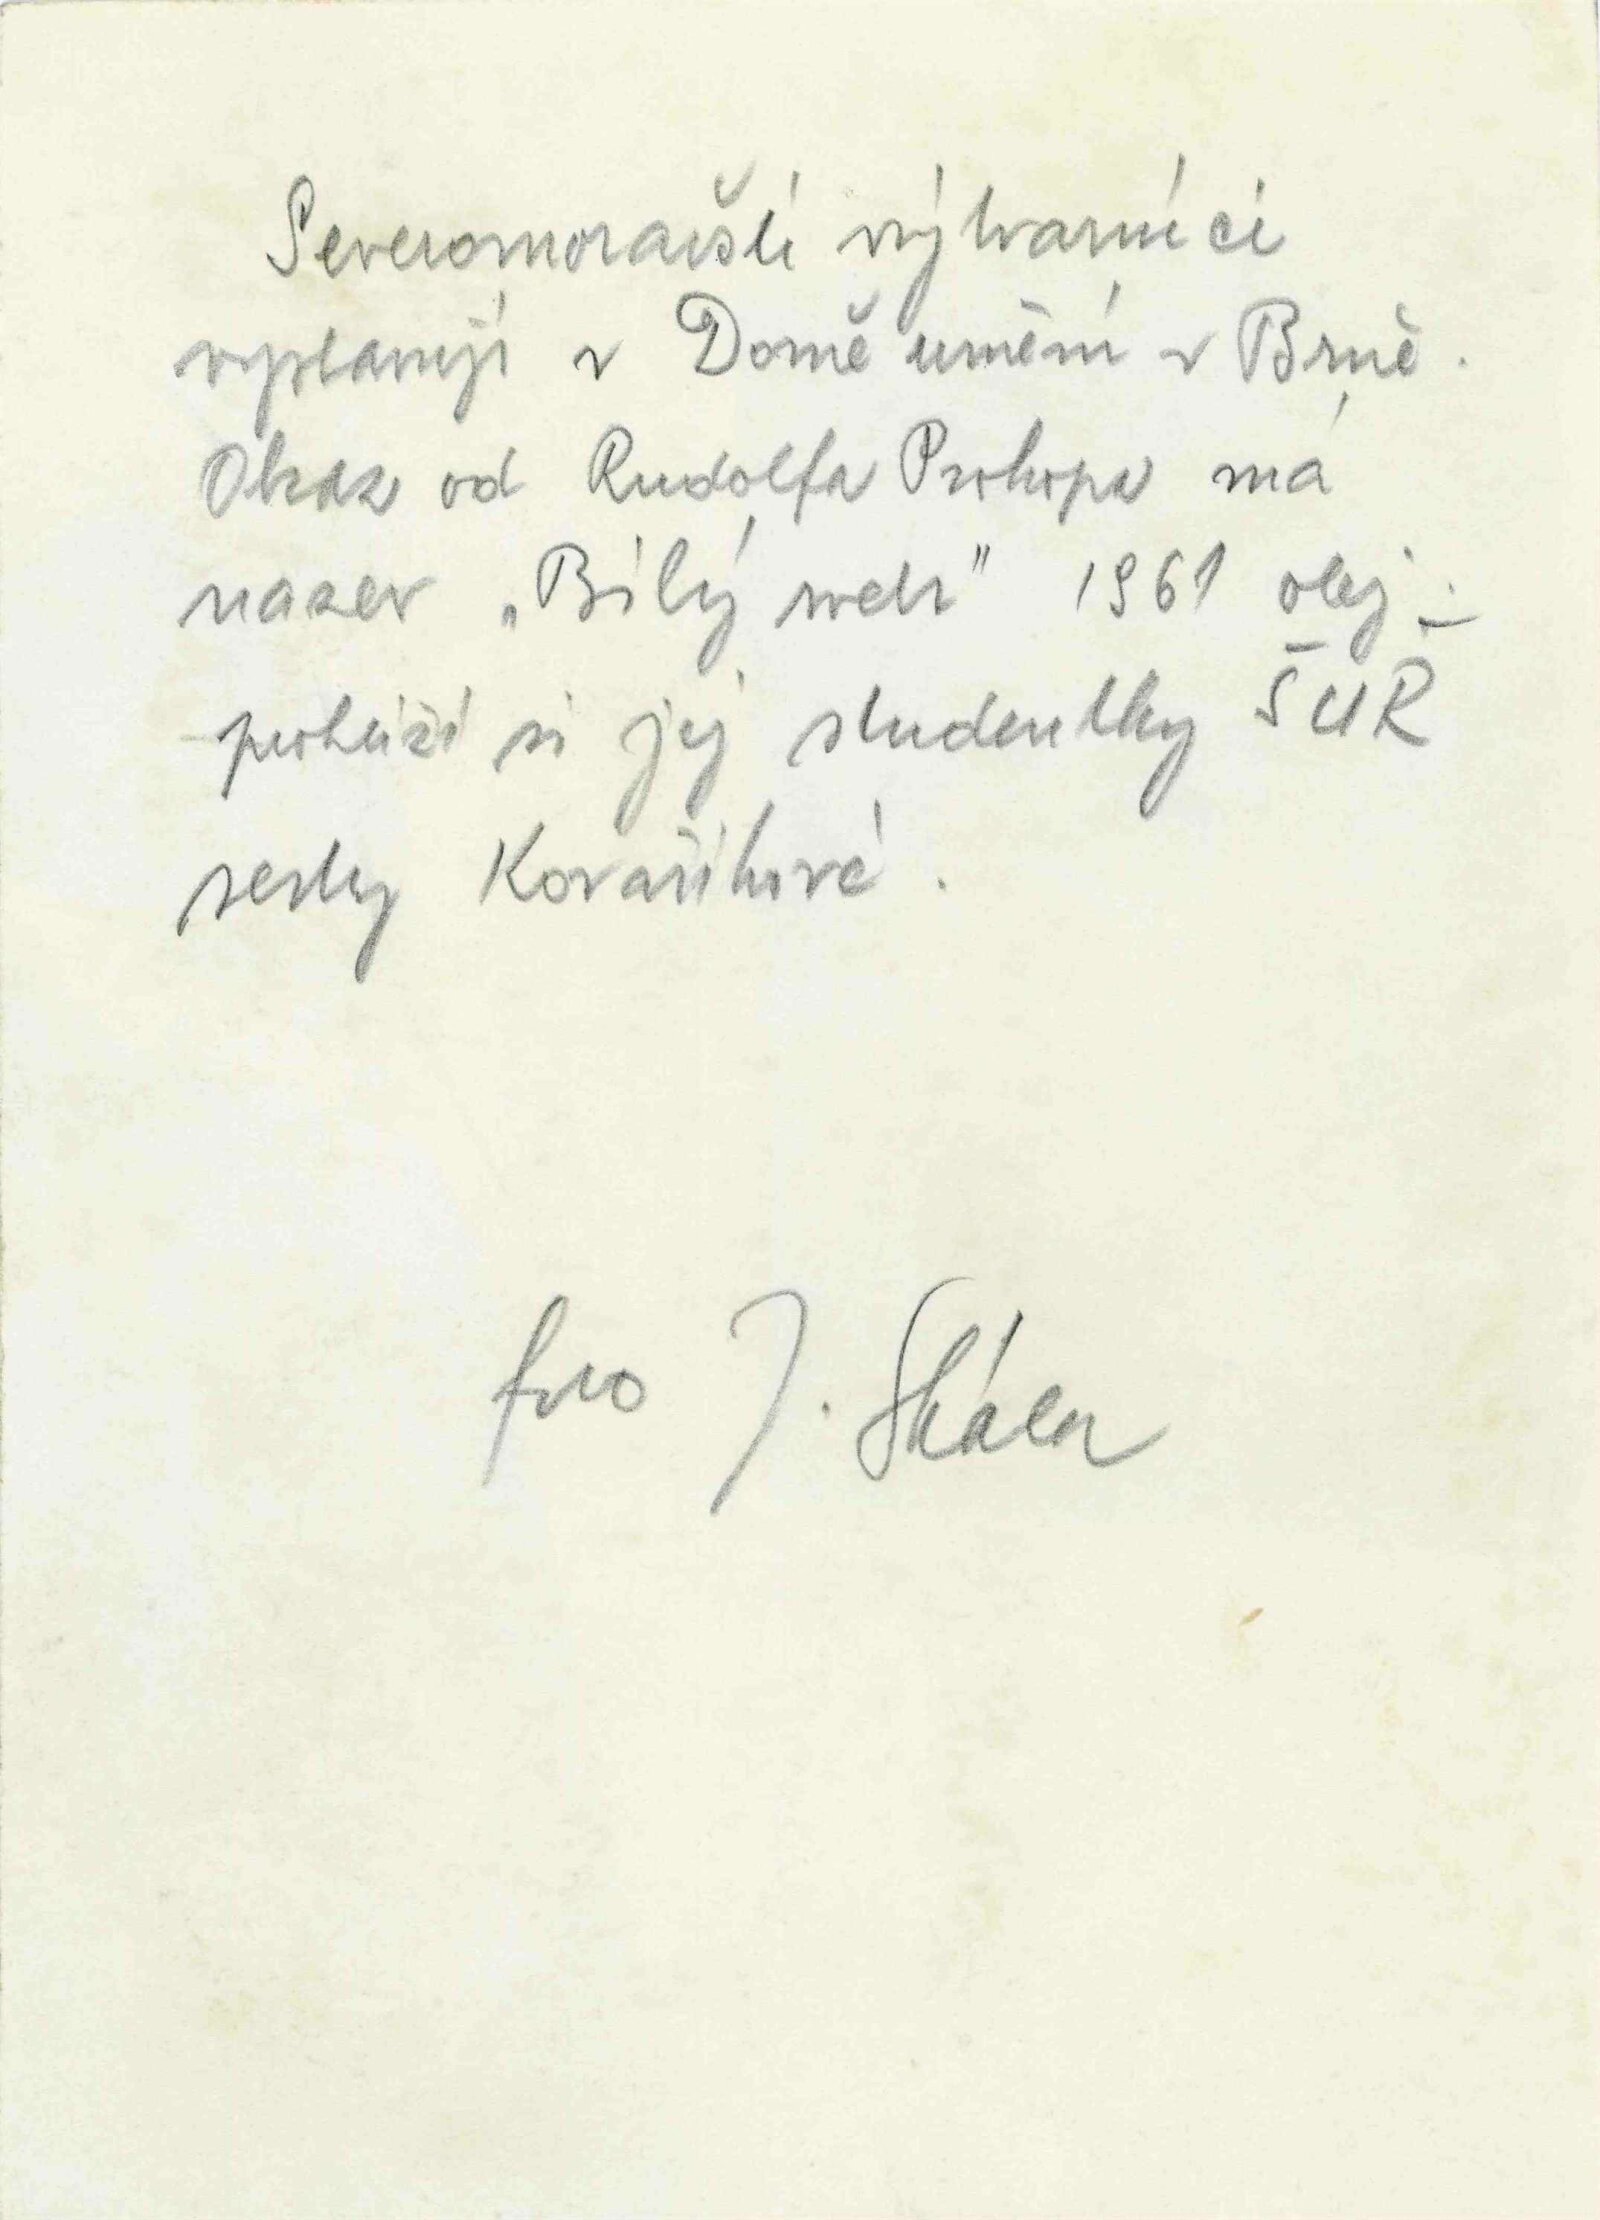 Severomoravští výtvarníci
vystavují v Domě umění v Brně.
Obraz od Rudolfa Prokopa má
nazev „Bílý svetr" 1961 olej -
prohlíží si jej studentky ŠUŘ
sestry Kovaříkové.
foto J. Skála